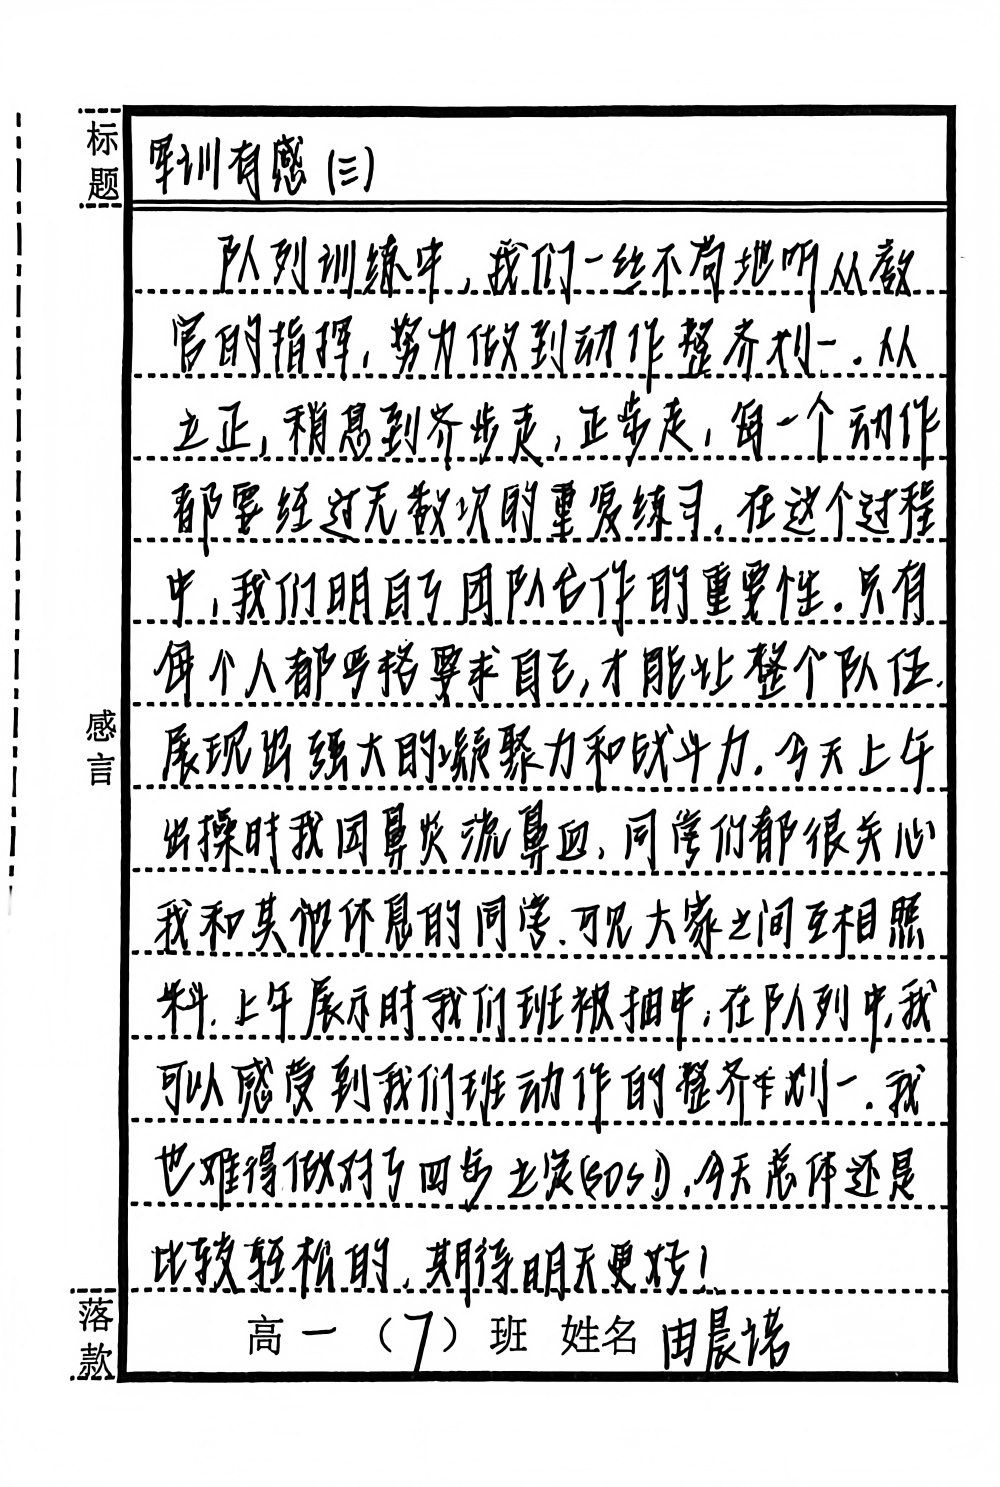 标题
军训有感（三）
队列训练中，我们一丝不苟地听从教
官的指挥，努力做到动作整齐划一。从
立正，稍息到齐步走，正步走，每一个动作
都要经过无数次的重复练习。在这个过程
中，我们明白了团队合作的重要性。只有
每个人都严格要求自己，才能让整个队伍
展现出强大的凝聚力和战斗力。今天上午
出操时我因鼻炎流鼻血，同学们都很关心
我和其他休息的同学。可见大家之间互相照
料。上午展示时我们班被抽中，在队列中，我
可以感受到我们班动作的整齐划一。我
也难得做对了四步之(SOS!)。今天总体还是
比较轻松的，期待明天更好！
感言
落款
高一（7）班 姓名 田晨诺